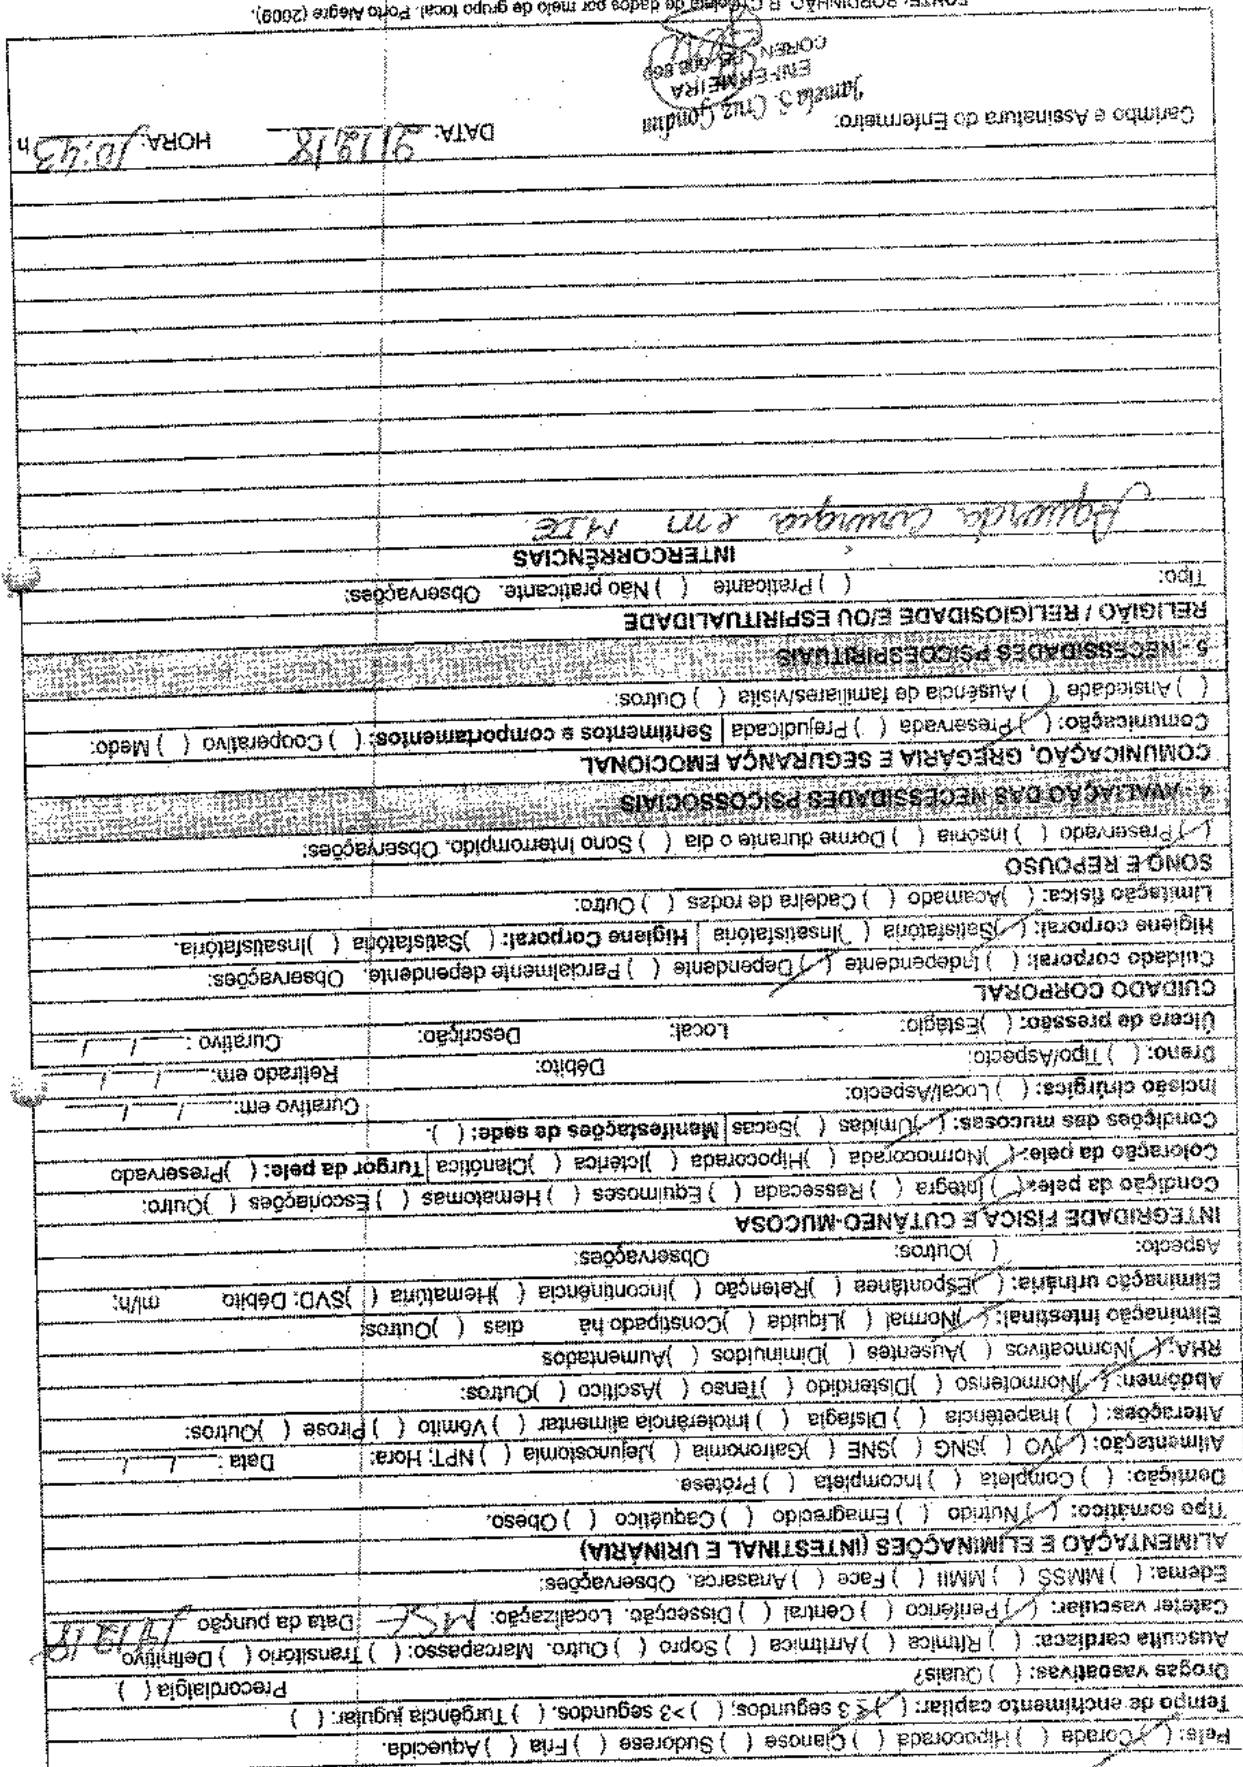 Pele: (✓) Corada ( ) Hipocorada ( ) Cianose ( ) Sudorese ( ) Fria ( ) Aquecida.
Tempo de enchimento capilar: (✓) ≤ 3 segundos; ( ) >3 segundos. ( ) Turgência jugular: ( )
Drogas vasoativas: ( ) Quais? Precordialgia ( )
Ausculta cardíaca: ( ) Rítmica ( ) Arrítmica ( ) Sopro ( ) Outro. Marcapasso: ( ) Transitório ( ) Definitivo
Cateter vascular: (✓) Periférico ( ) Central ( ) Dissecção. Localização: MSE Data da punção
Edema: ( ) MMSS ( ) MMII ( ) Face ( ) Anasarca. Observações:
ALIMENTAÇÃO E ELIMINAÇÕES (INTESTINAL E URINÁRIA)
Tipo somático: (✓) Nutrido ( ) Emagrecido ( ) Caquético ( ) Obeso.
Dentição: ( ) Completa ( ) Incompleta ( ) Prótese
Alimentação: (✓) VO ( ) SNG ( ) SNE ( ) Gatronomia ( ) Jejunostomia ( ) NPT: Hora: Data : __/__/__
Alterações: ( ) Inapetência ( ) Disfagia ( ) Intolerância alimentar ( ) Vômito ( ) Pirose ( ) Outros:
Abdômen: (✓) Normotenso ( ) Distendido ( ) Tenso ( ) Ascítico ( ) Outros:
RHA: (✓) Normoativos ( ) Ausentes ( ) Diminuidos ( ) Aumentados
Eliminação Intestinal: (✓) Normal ( ) Líquida ( ) Constipado há dias ( ) Outros:
Eliminação urinária: (✓) Espontânea ( ) Retenção ( ) Incontinência ( ) Hematúria ( ) SVD: Débito ml/h:
Aspecto: ( ) Outros: Observações:
INTEGRIDADE FÍSICA E CUTÂNEO-MUCOSA
Condição da pele: (✓) Íntegra ( ) Ressecada ( ) Equimoses ( ) Hematomas ( ) Escoriações ( ) Outro:
Coloração da pele: (✓) Normocorada ( ) Hipocorada ( ) Ictérica ( ) Cianótica Turgor da pele: ( ) Preservado
Condições das mucosas: (✓) Úmidas ( ) Secas Manifestações de sede: ( ).
Incisão cirúrgica: ( ) Local/Aspecto: Curativo em: __/__/__
Dreno: ( ) Tipo/Aspecto: Débito: Retirado em: __/__/__
Úlcera de pressão: ( ) Estágio: Local: Descrição: Curativo : __/__/__
CUIDADO CORPORAL
Cuidado corporal: ( ) Independente (✓) Dependente ( ) Parcialmente dependente. Observações:
Higiene corporal: (✓) Satisfatória ( ) Insatisfatória Higiene Corporal: ( ) Satisfatória ( ) Insatisfatória.
Limitação física: ( ) Acamado ( ) Cadeira de rodas ( ) Outro:
SONO E REPOUSO
(✓) Preservado ( ) Insônia ( ) Dorme durante o dia ( ) Sono Interrompido. Observações:
4 - AVALIAÇÃO DAS NECESSIDADES PSICOSSOCIAIS
COMUNICAÇÃO, GREGÁRIA E SEGURANÇA EMOCIONAL
Comunicação: (✓) Preservada ( ) Prejudicada Sentimentos e comportamentos: ( ) Cooperativo ( ) Medo:
( ) Ansiedade ( ) Ausência de familiares/visita ( ) Outros:
5 - NECESSIDADES PSICOESPIRITUAIS
RELIGIÃO / RELIGIOSIDADE E/OU ESPIRITUALIDADE
Tipo: ( ) Praticante ( ) Não praticante. Observações:
INTERCORRÊNCIAS
Aguarda cirurgia em MIE.
Carimbo e Assinatura do Enfermeiro: DATA: HORA: 10:43 h
S. Cruz Gondim
ENFERMEIRA
COREN